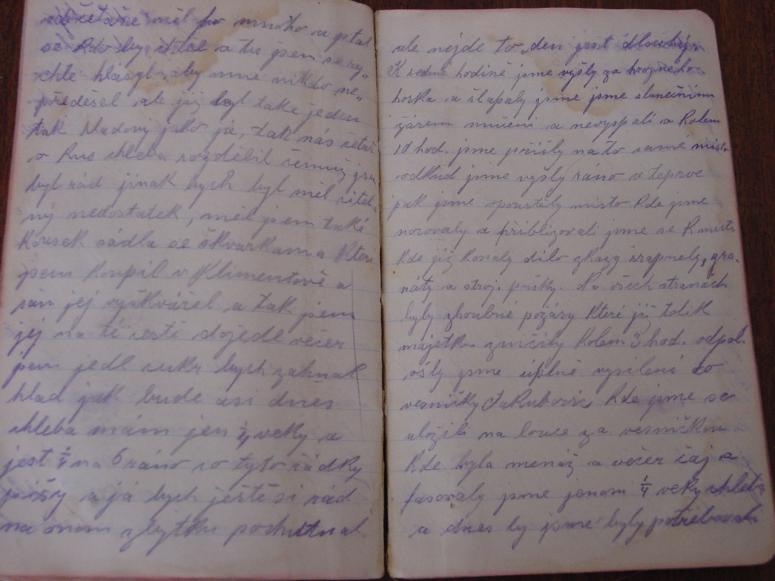 měl mnoho a ptal
se kdo by chtěl a tu jsem se ry-
chle hlásyl aby mne nikdo ne-
předešel ale již byl také jeden
tak hladový jako já, tak nás
o kus chleba rozdělil čemuž jsem
byl rád jinak bych byl měl citel-
ný nedostatek, měl jsem také
kousek sádla se škvarkama které
jsem koupil v Klimentově a
sám jej vyškvářel a tak jsem
jej na té cestě dojedl večer
jsem jedl cukr bych zahnal
hlad jak bude asi dnes
chleba mám jen 1/4 veky a
jest 1/4 na 6 ráno co tyto řádky
píšy a já bych ještě si rád
na onom zbytku pochutnal
ale nejde to, den jest dlouhý.
K sedmé hodině jsme vyšly za
horka a šlapaly jsme jsme slunečním
žárem mučeni a nevyspalí a kolem
10 hod. jsme přišly na to samé místo
odkud jsme vyšly ráno a teprve
pak jsme opustily místo kde jsme
nocovaly a přibližovali jsme se k místu
kde již konaly dílo zkázy šrapnely, gra-
náty a stroj. pušky. Na všech stranách
byly zhoubné požáry které již tolik
majetku zničily kolem 3 hod. odpol.
ošly jsme úplně vysílení do
vesničky Jakubovic kde jsme se
uložili na louce za vesničkou
kde byla menáž a večer čaj a
fasovaly jsme jenom 1/4 veky chleba
a dnes by jsme byly potřebovaly